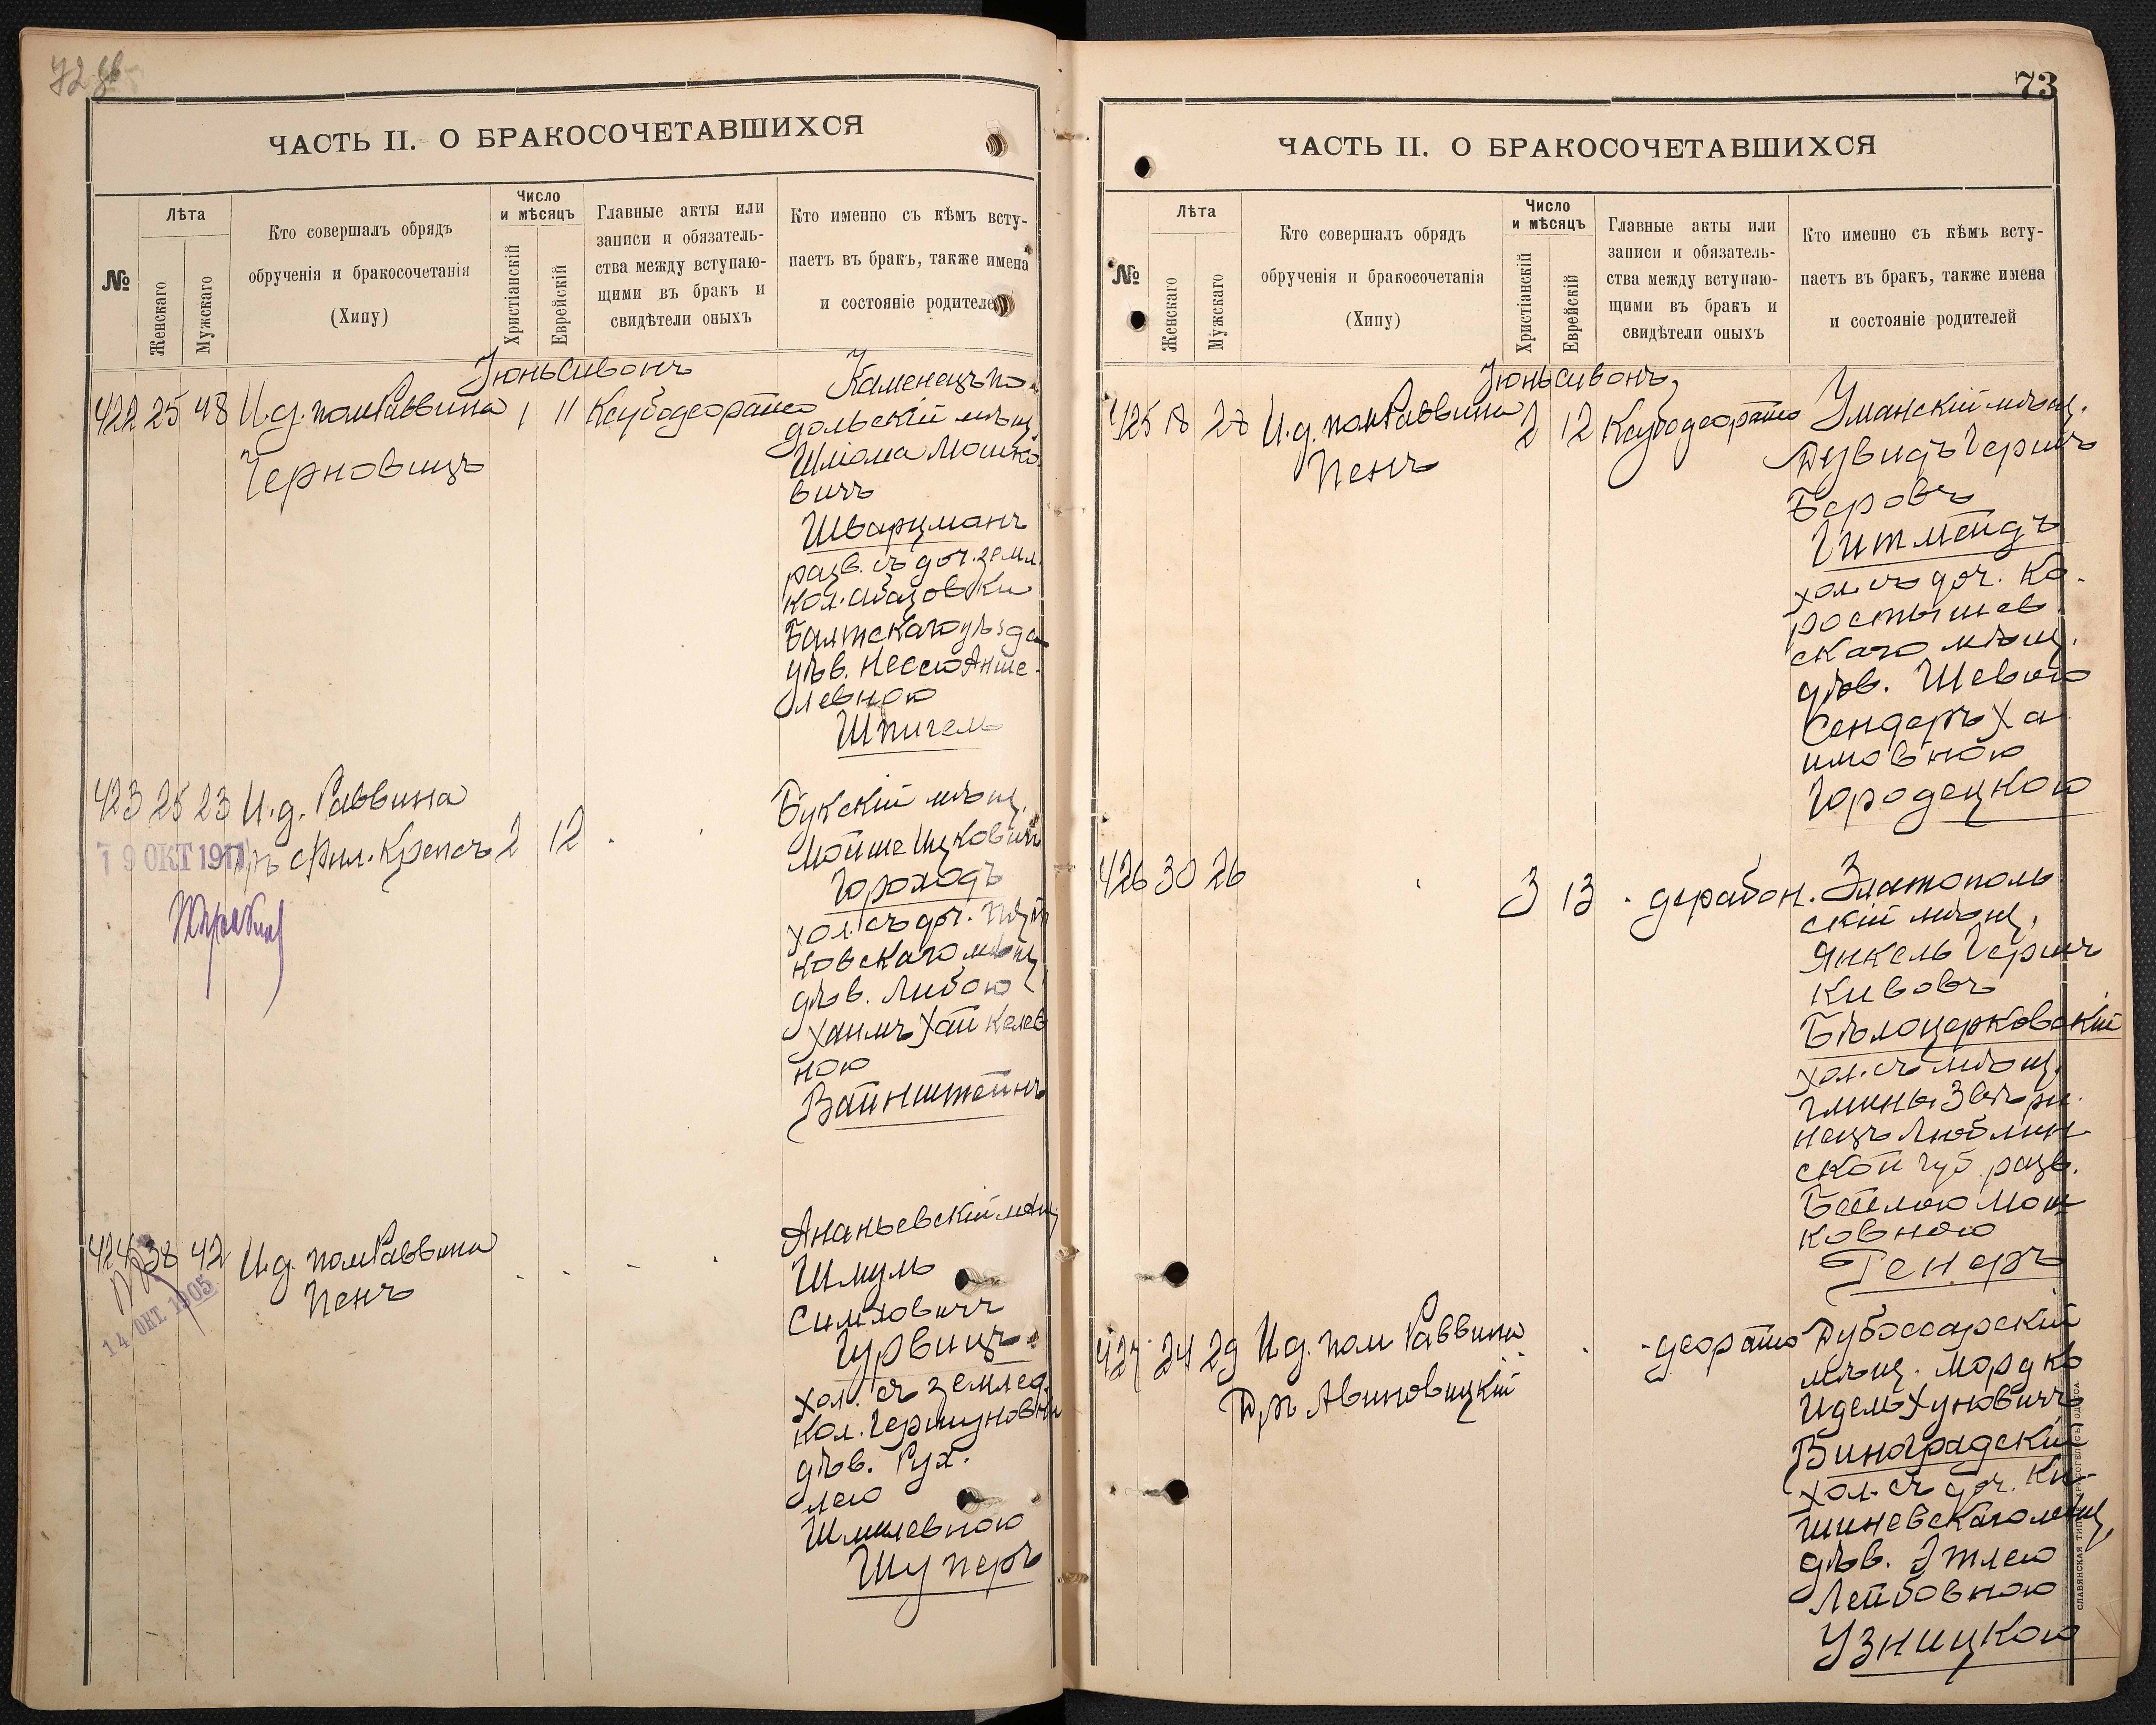 72 об
ЧАСТЬ II. О БРАКОСОЧЕТАВШИХСЯ
№
Лѣта
Женскаго
Мужскаго
Кто совершалъ обрядъ
обрученія и бракосочетанія
(Хипу)
Число
и мѣсяцъ
Христіанскій
Еврейскій
Главные акты или
записи и обязатель-
ства между вступаю-
щими въ бракъ и
свидѣтели оныхъ
Кто именно съ кѣмъ всту-
паетъ въ бракъ, также имена
и состояніе родителей
Іюнь Сивонъ
422 25 48 И.д. пом Раввина 1 11 Ксубодеораисо
Черновицъ
Каменецъ по
дольскій мѣщ
Шліома Мошко
вичъ
Шварцманъ
разв. съ доч. земл.
кол. Абазовки
Балтскаго уѣзда
дѣв. Нессю Анше-
левною
Шпигель
423 25 23 И.д. Раввина
Др Фил. Крепсъ 2 12
19 ОКТ 1911
Букскій мѣщ.
Мойше Ицковичъ
Гороходъ
хол. съ доч.
новскаго мѣщ
дѣв. Либою
Хаимъ Хайкелев
ною
Вайнштейнъ
424 38 42 И.д. пом Раввина
Пенъ
14 ОКТ 1905
Ананьевскій мѣщ
Шмуль
Симховичъ
Гурвицъ
хол. съ землед.
кол.
дѣв. Рух.
лею
Шмилевною
Шуперъ
73
ЧАСТЬ II. О БРАКОСОЧЕТАВШИХСЯ
№
Лѣта
Женскаго
Мужскаго
Кто совершалъ обрядъ
обрученія и бракосочетанія
(Хипу)
Число
и мѣсяцъ
Христіанскій
Еврейскій
Главные акты или
записи и обязатель-
ства между вступаю-
щими въ бракъ и
свидѣтели оныхъ
Кто именно съ кѣмъ всту-
паетъ въ бракъ, также имена
и состояніе родителей
Іюнь Сивонъ
425 18 28 И.д. пом Раввина 2 12 Ксубодеораисо
Пенъ
Уманскій мѣщ.
Дувидъ Гершъ
Беровъ
Гитмейдъ
хол. съ доч. Ко-
ростышев
скаго мѣщ.
дѣв. Шевою
Сендеръ Ха
имовною
Городецкою
426 30 26 3 13 дерабон.
Златополь
скій мѣщ.
Янкель Гершъ
Кивовъ
Бѣлоцерковскій
хол. съ мѣщ.
гмины Звѣри
нецъ Люблин
ской губ. разв.
Бейлою Мош
ковною
Генеръ
427 24 29 И.д. пом Раввина деораисо
Др Авиновицкій
Дубоссарскій
мѣщ. Мордко
Идель Хуновичъ
Виноградскій
хол. съ доч. Ки-
шиневскаго мѣщ.
дѣв. Этлею
Лейбовною
Узницкою